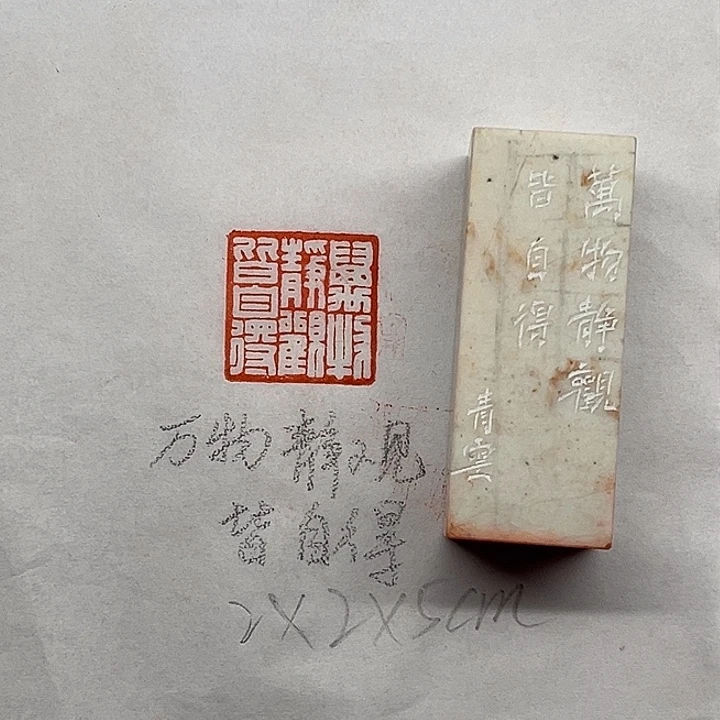 萬物
靜觀
皆自得
万物静观
皆自得
2X2X5cm
萬物靜觀
皆自得
青雩